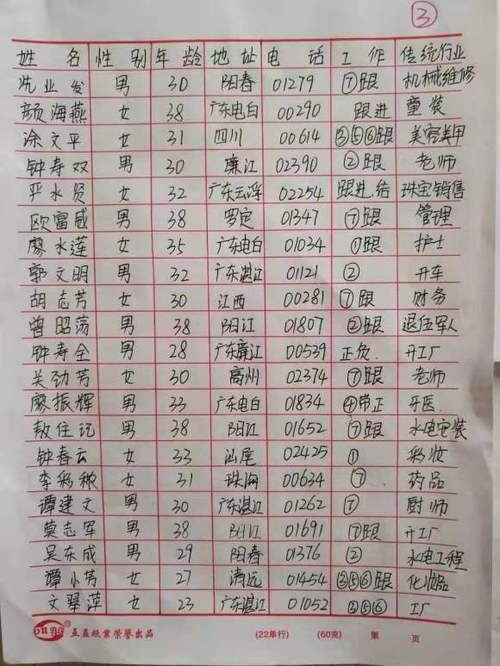 ③
姓名 性别 年龄 地址 电话 工作 传统行业
沈业发 男 30 阳春 01279 ⑦跟 机械维修
颜海燕 女 38 广东电白 00290 跟进 童装
涂文平 女 31 四川 00614 ③⑤⑥跟 美容美甲
钟寿双 男 30 廉江 02390 ②跟 老师
严水贤 女 32 广东云浮 02254 跟进、给 珠宝销售
欧富威 男 38 罗定 01347 ⑦跟 管理
廖水莲 女 35 广东电白 01034 ①跟 护士
郭文明 男 32 广东湛江 01121 ② 开车
胡志芳 女 30 江西 00281 ⑦跟 财务
曾昭荡 男 38 阳江 01807 ②跟 退伍军人
钟寿全 男 28 广东廉江 00539 正负 开工厂
关劲芳 女 30 高州 02374 ⑦跟 老师
廖振辉 男 33 广东电白 01834 ④带正 开医
敖住记 男 38 阳江 01652 ⑦跟 水电安装
钟春云 女 33 汕尾 02425 ① 彩妆
李彩秾 女 31 珠海 00634 ⑦ 药品
谭建文 男 30 广东湛江 01262 ⑦ 厨师
莫志军 男 38 阳江 01691 ⑦跟 开工厂
吴东成 男 29 阳春 01376 ② 水电工程
谭小芳 女 27 清远 01454 ③⑤⑥跟 化妆品
文翠萍 女 23 广东湛江 01052 ②⑤⑥ 工厂
立信纸业荣誉出品 (22单行) (60克) 第 页